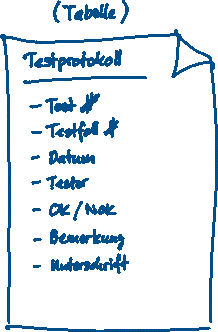 (Tabelle)
Testprotokoll
- Test #
- Testfall #
- Datum
- Tester
- OK/NOK
- Bemerkung
- Unterschrift